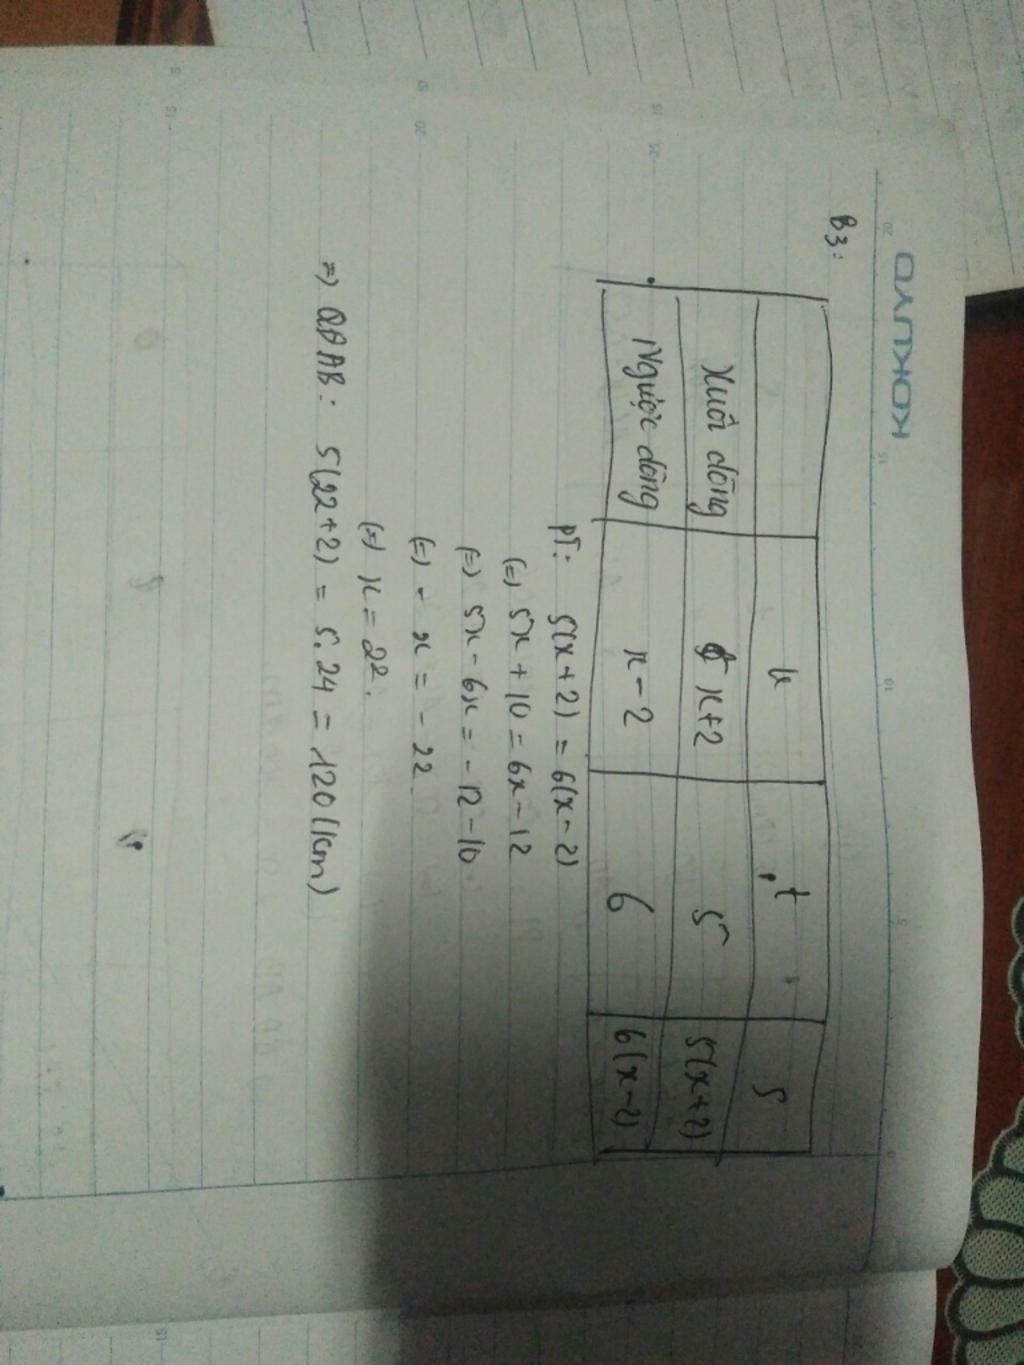 KOKUYO
B3:
v t s
Xuôi dòng x+2 5 5(x+2)
Ngược dòng x-2 6 6(x-2)
PT: 5(x+2) = 6(x-2)
(=) 5x + 10 = 6x - 12
(=) 5x - 6x = -12 - 10
(=) - x = - 22.
(=) x = 22.
=> QĐ AB: 5(22+2) = 5.24 = 120 (km)